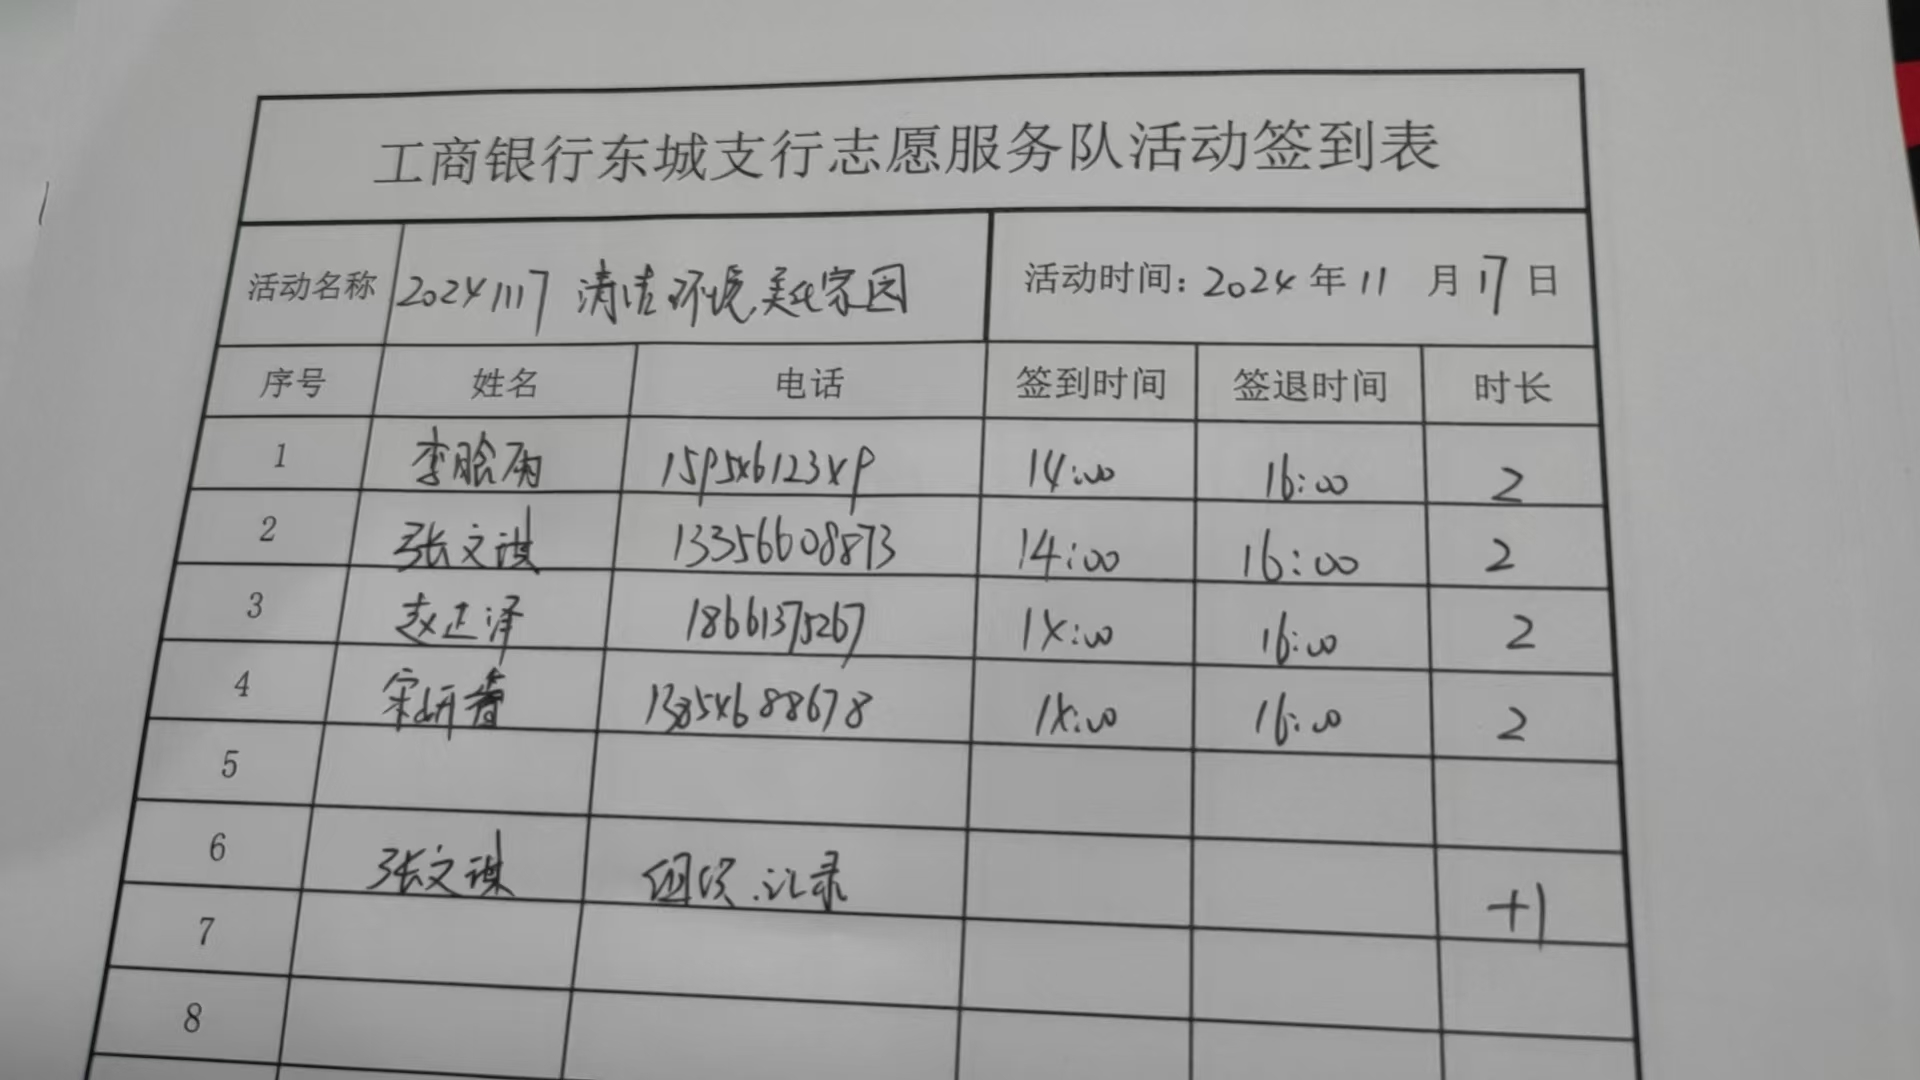 工商银行东城支行志愿服务队活动签到表
活动名称 20241117 清洁环境,美化家园 活动时间: 2024 年 11 月 17 日
序号 姓名 电话 签到时间 签退时间 时长
1 李晗雨 15954612349 14:00 16:00 2
2 张文谋 13356608873 14:00 16:00 2
3 赵延泽 18661375267 14:00 16:00 2
4 宋妍 13854688678 14:00 16:00 2
5
6 张文谋 组织.记录 +1
7
8